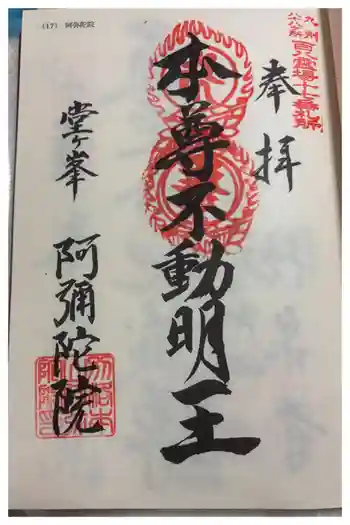 (17) 阿弥陀院
九州
八十八ヶ所
百八霊場十七番札所
奉拝
本尊不動明王
堂ヶ峯
阿彌陀院